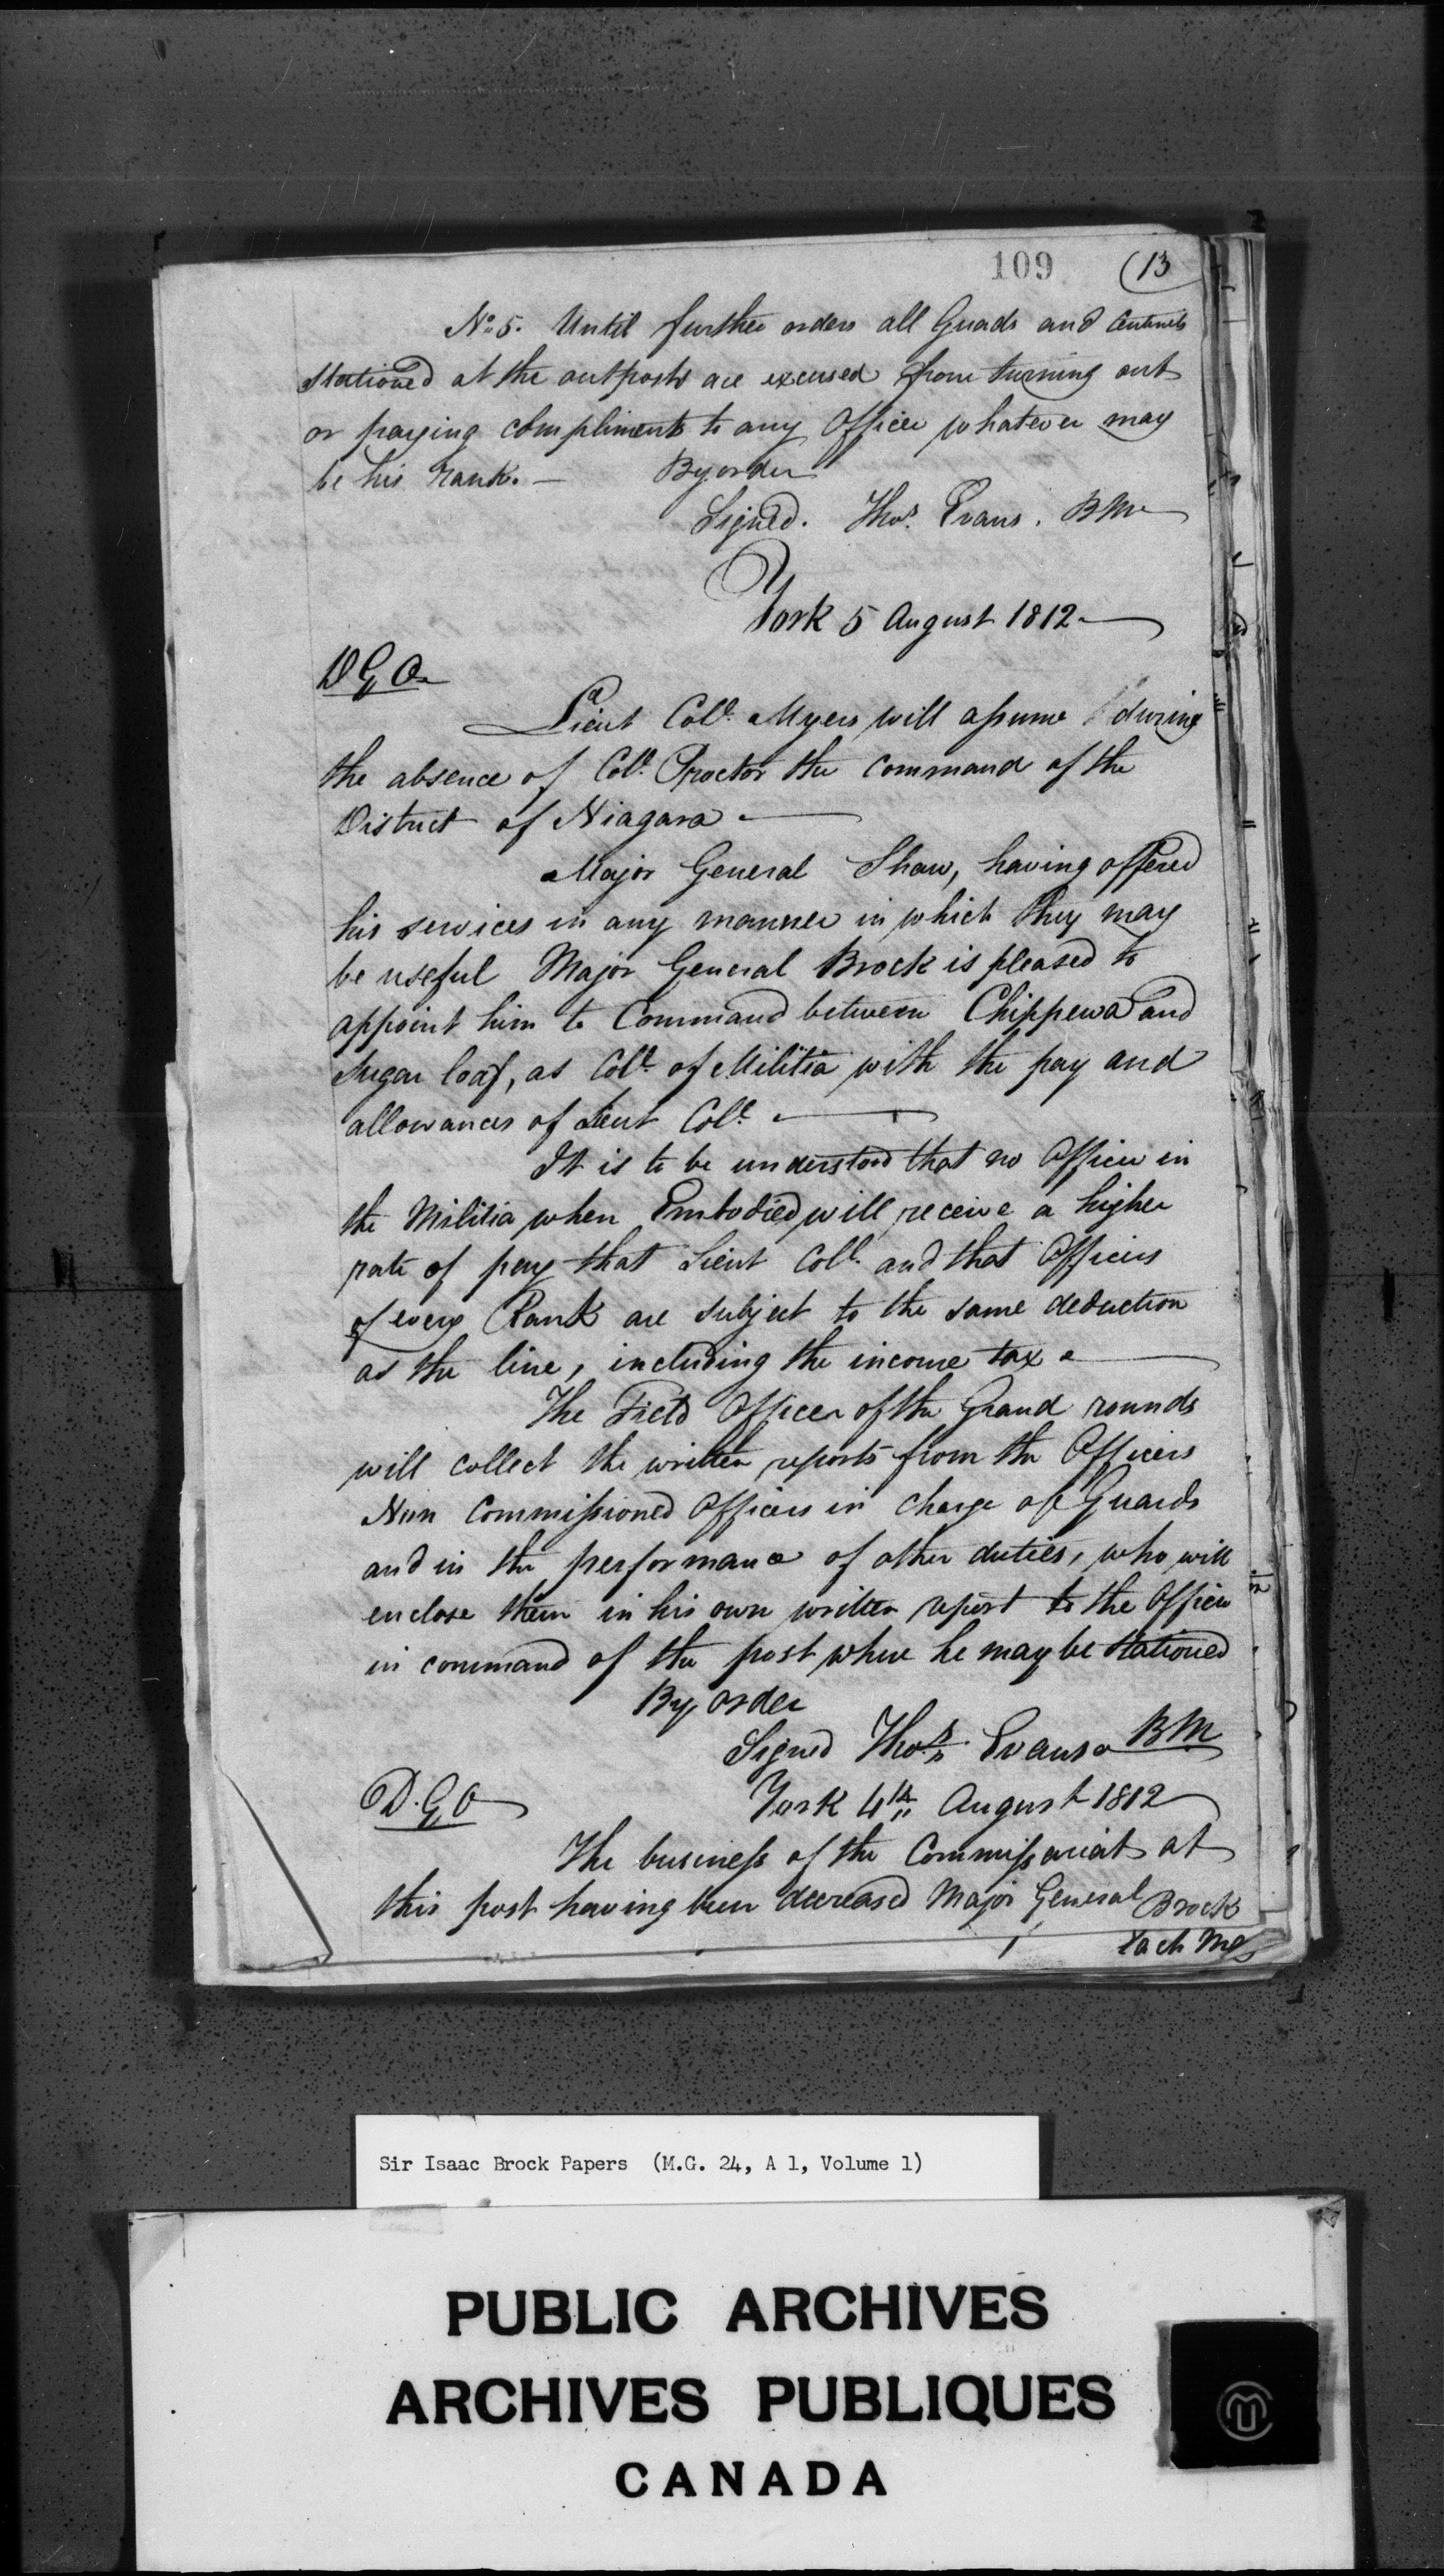 109 (13
No 5. Until further orders all Guads and Centinels
stationed at the outposts are excused from turning out
or paying compliments to any Officer whatever may
be his rank. — By order
Signed. Thos. Evans. BM
York 5 August 1812 —
D G O
Lieut Coll. Myers will assume during
the absence of Coll. Proctor the command of the
District of Niagara —
Major General Shaw, having offered
his services in any manner in which they may
be useful Major General Brock is pleased to
appoint him to Command between Chippewa and
Sugar loaf, as Coll. of Militia with the pay and
allowances of Lieut Coll. —
It is to be understood that no Officer in
the Militia when Embodied will receive a higher
rate of pay that Lieut Coll. and that Officers
of every Rank are subject to the same deduction
as the line, including the income tax —
The Field Officer of the Grand rounds
will collect the written reports from the Officers
Non Commissioned Officers in charge of Guards
and in the performance of other duties, who will
enclose them in his own written report to the Officer
in command of the post where he may be stationed
By order
Signed Thos. Evans BM
D. G. O York 4th August 1812
The business of the Commissariat at
this post having been decreased Major General Brock
Sir Isaac Brock Papers (M.G. 24, A 1, Volume 1)
PUBLIC ARCHIVES
ARCHIVES PUBLIQUES
CANADA